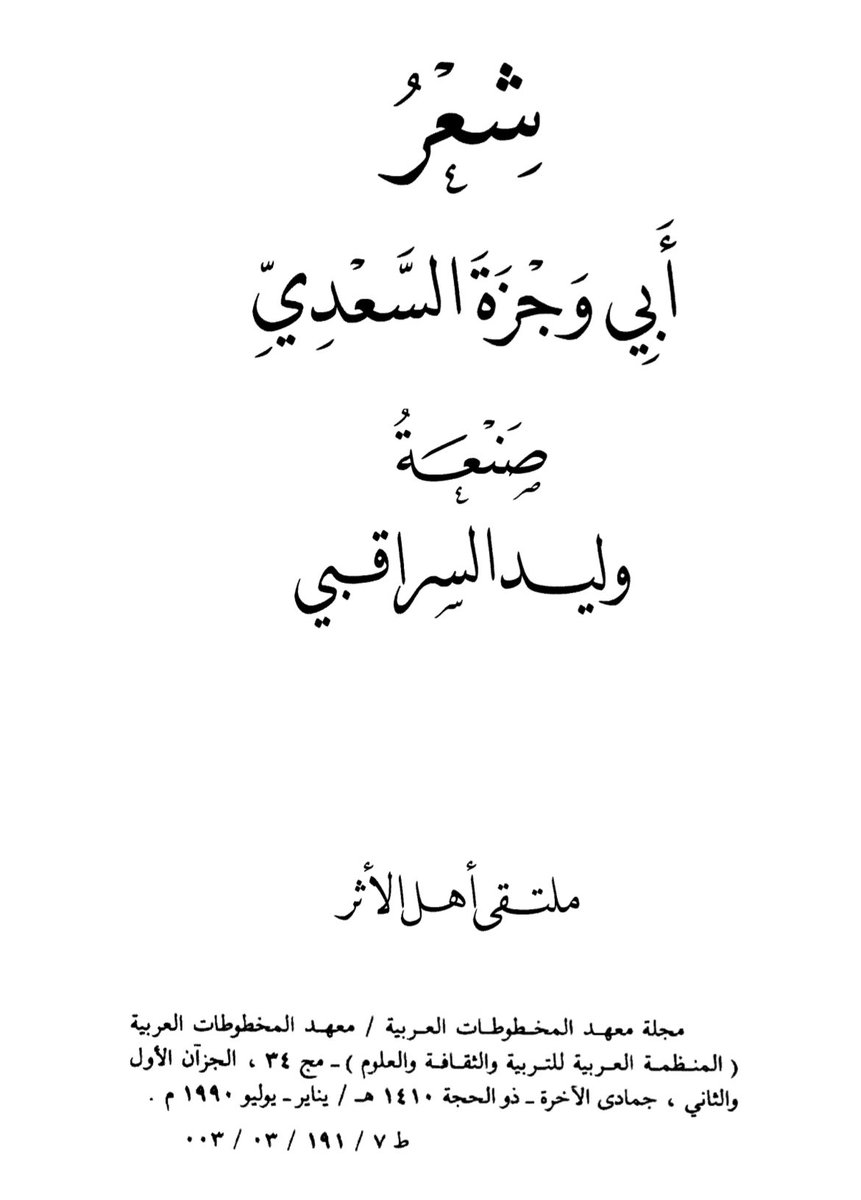 شِعْرُ
أَبِي وَجْزَةَ السَّعْدِيِّ
صَنْعَةُ
وليد السراقبي
ملتقى أهل الأثر
مجلة معهد المخطوطات العربية / معهد المخطوطات العربية
( المنظمة العربية للتربية والثقافة والعلوم ) ـ مج ٣٤ ، الجزآن الأول
والثاني ، جمادى الآخرة ـ ذو الحجة ١٤١٠ هـ / يناير ـ يوليو ١٩٩٠ م .
ط ٧ / ١٩١ / ٠٣ / ٠٠٣